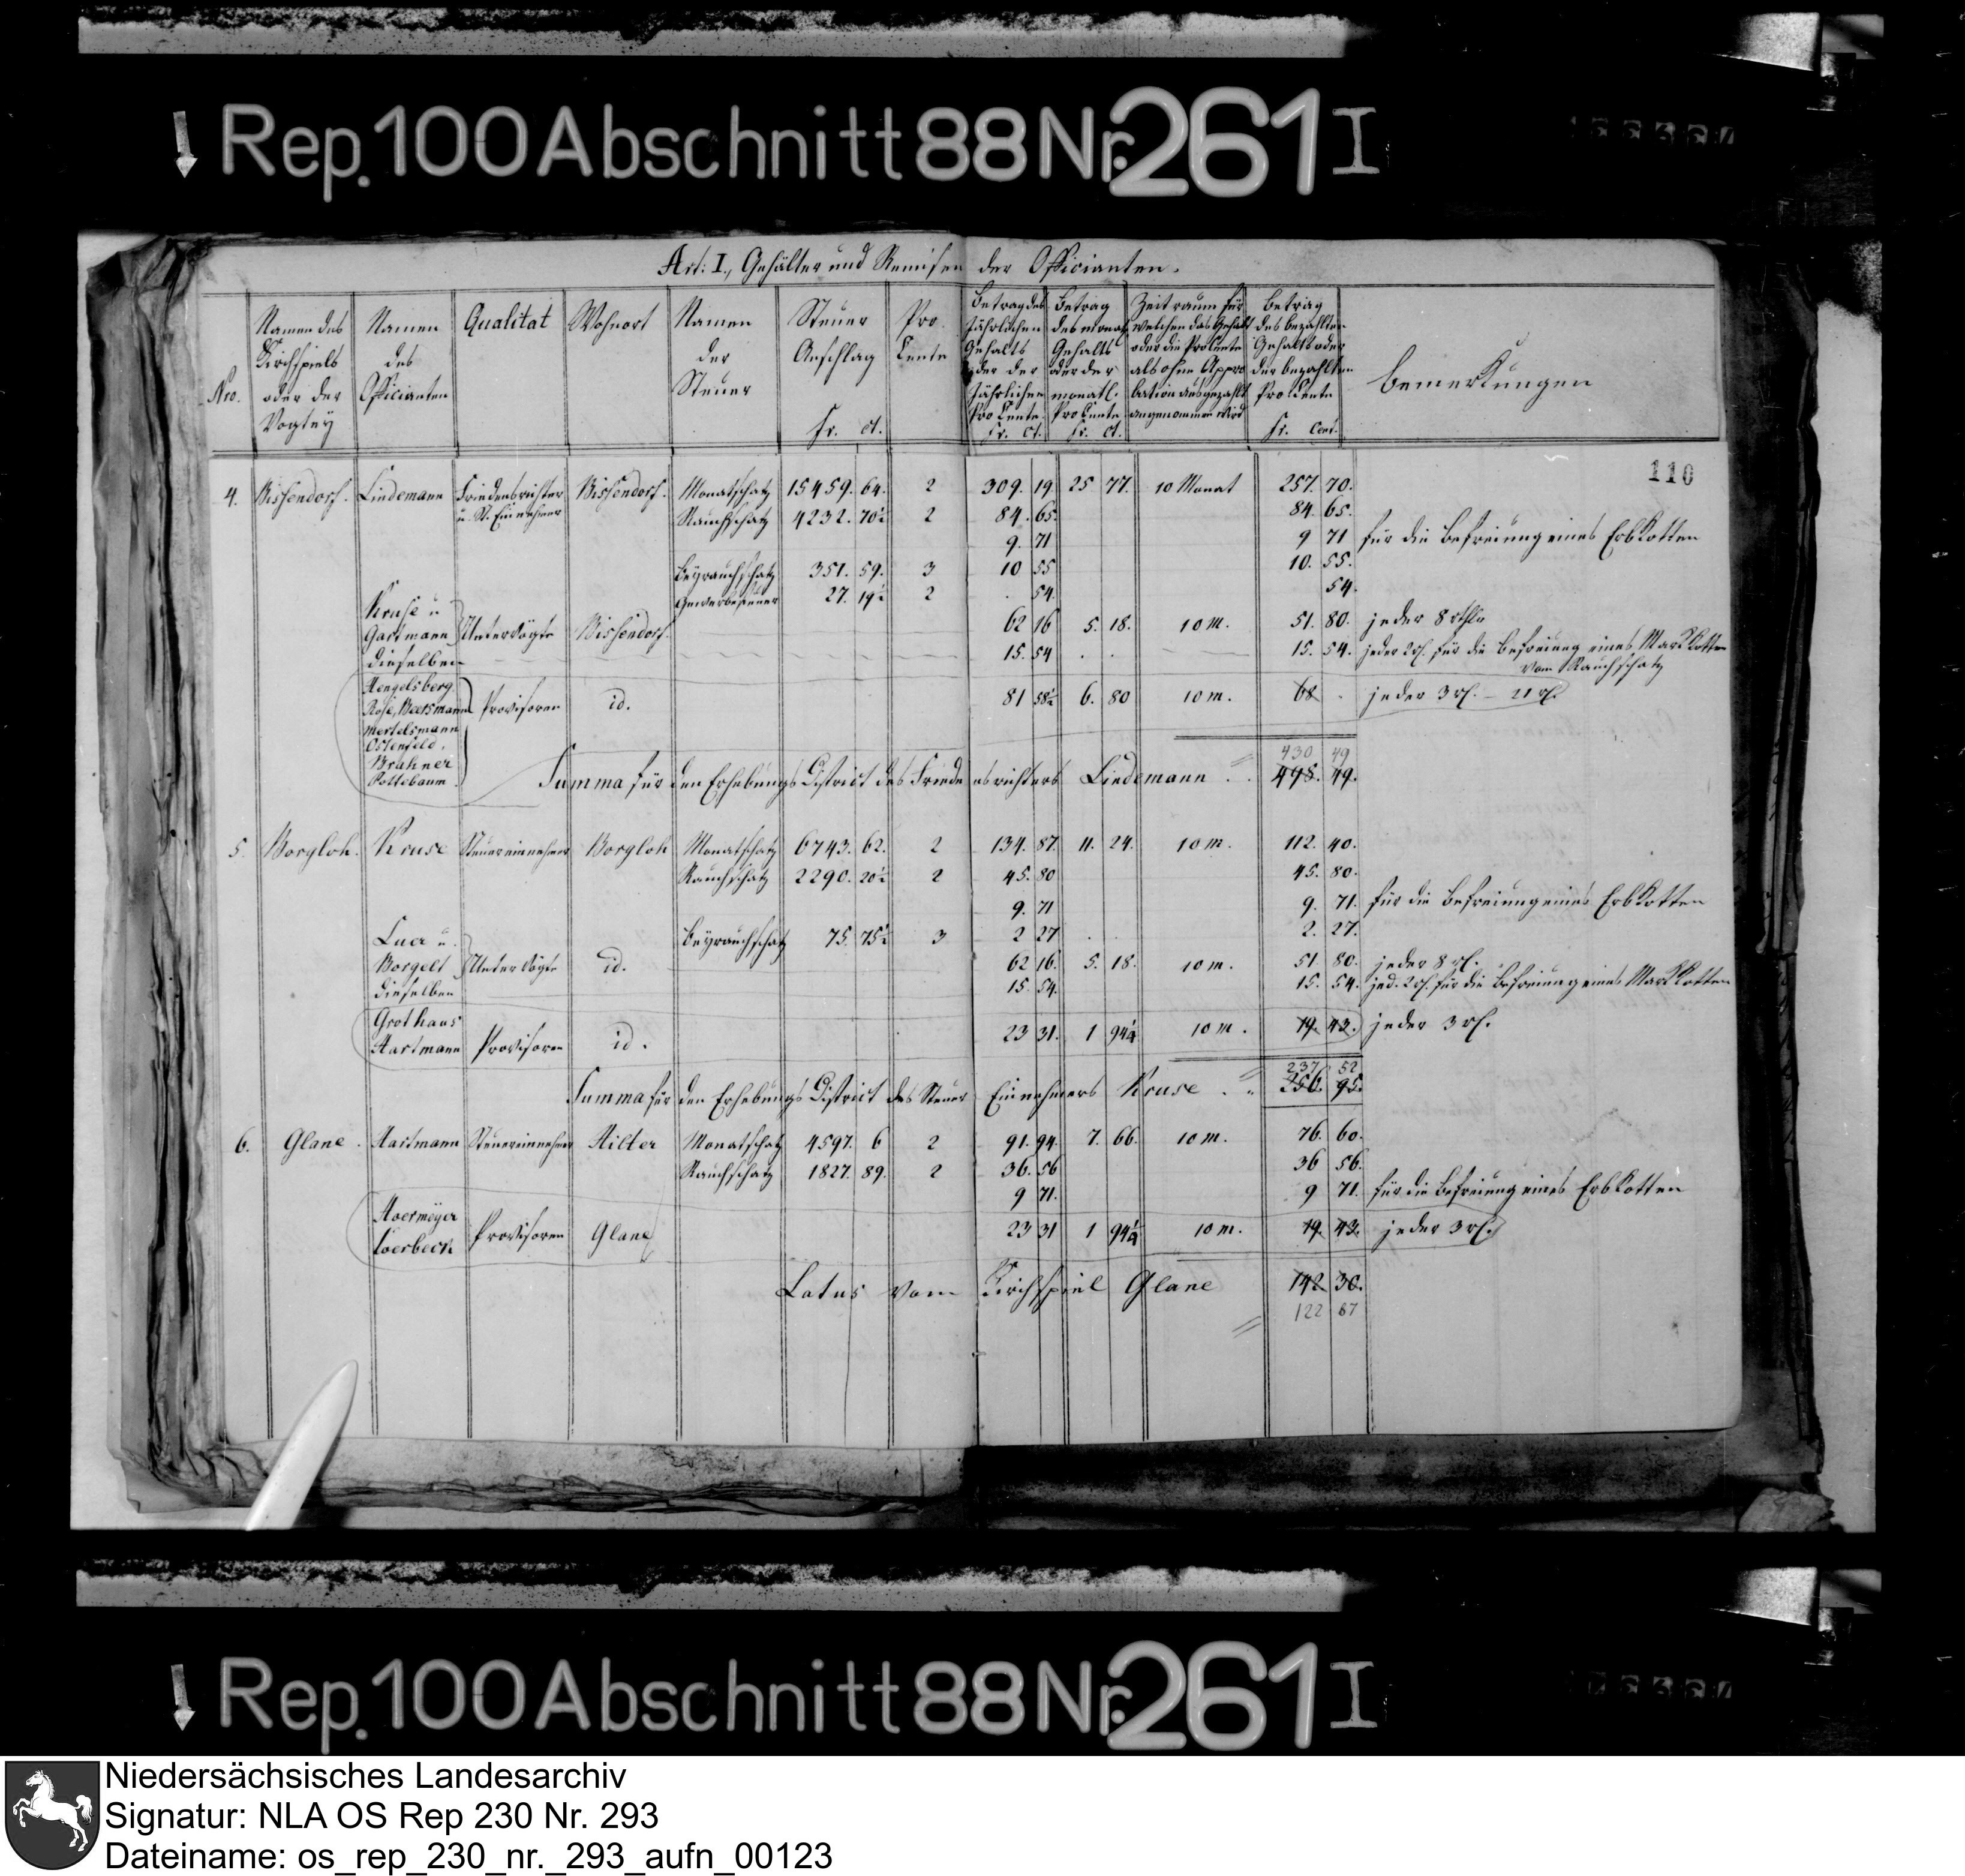 Rep. 100 Abschnitt 88 Nr. 261 I
Art: I., Gehälter und Remisen der Officianten.
Nro.
Namen des Kirchspiels oder der Vogtey
Namen des Officianten
Qualitat
Wohnort
Namen der Steuer
Steuer Anschlag fr. ct.
Pro Cente
Betrag des Jährlichen Gehalts oder der Jährlichen Pro Cente fr. ct.
Betrag des monatl. Gehalts oder der monatl. Pro Cente fr. ct.
Zeitraum für welchen das Gehalt oder die Pro Cente als ohne Appro bation ausgezahlt angenommen wird
Betrag des bezahlten Gehalts oder der bezahlten Pro Cente fr. Cent.
Bemerkungen
110
4. Bissendorf. Lindemann Friedensrichter Bissendorf. Monatschatz 15459. 64. 2 309. 19 25 77. 10 Monat 257. 70.
u. St. Einnehmer Rauchschatz 4232. 70½ 2 84. 65. 84. 65.
9. 71 9 71 für die Befreiung eines Erbkotten
Beyrauchschatz 351. 59. 3 10 55 10. 55.
Gewerbesteuer 27. 19½ 2 . 54. 54.
Kruse u Gartmann Untervögte Bissendorf. 62 16 5. 18. 10 m. 51. 80. jeder 8 rthlr
dieselben 15. 54 . . 15. 54. jeder 2 rh. für die Befreiung eines Markkotten
vom Rauchschatz
Hengelsberg
Rose, Beersmann Provisoren id. 81 58½ 6. 80 10 m. 68 . jeder 3 rh. – 21 rh.
Mertelsmann
Ostenfeld.
Brahner
Pottebaum.
430 49
Summa für den Erhebungs District des Friedensrichters Lindemann . . 498. 49.
5. Borgloh. Kruse Steuereinnehmer Borgloh Monatschatz 6743. 62. 2 134. 87. 11. 24. 10 m. 112. 40.
Rauchschatz 2290. 20½ 2 45. 80 45. 80.
9. 71 9. 71. für die Befreiung eines Erbkotten
Luer u. Beyrauchschatz 75. 75½ 3 2 27 . . 2. 27.
Borgelt Untervögte id. 62 16. 5. 18. 10 m. 51. 80. jeder 8 rh.
dieselben 15. 54. 15. 54. jed. 2 rh. für die Befreiung eines Markkotten
Grothaus
Hartmann Provisoren id. 23 31. 1 94¼ 10 m. 19. 43. jeder 3 rh.
237 52
Summa für den Erhebungs District des Steuer Einnehmers Kruse . . 256. 95.
6. Glane. Hartmann Steuereinnehmer Hilter Monatschatz 4597. 6 2 91. 94. 7. 66. 10 m. 76. 60.
Rauchschatz 1827. 89. 2 36. 56 36 56.
9 71. 9 71. für die Befreiung eines Erbkotten
Hoermeyer
Coerbeck Provisoren Glane 23 31 1 94¼ 10 m. 19. 43. jeder 3 rh.
Latus vom Kirchspiel Glane 142 30.
122 87
Rep. 100 Abschnitt 88 Nr. 261 I
Niedersächsisches Landesarchiv
Signatur: NLA OS Rep 230 Nr. 293
Dateiname: os_rep_230_nr._293_aufn_00123